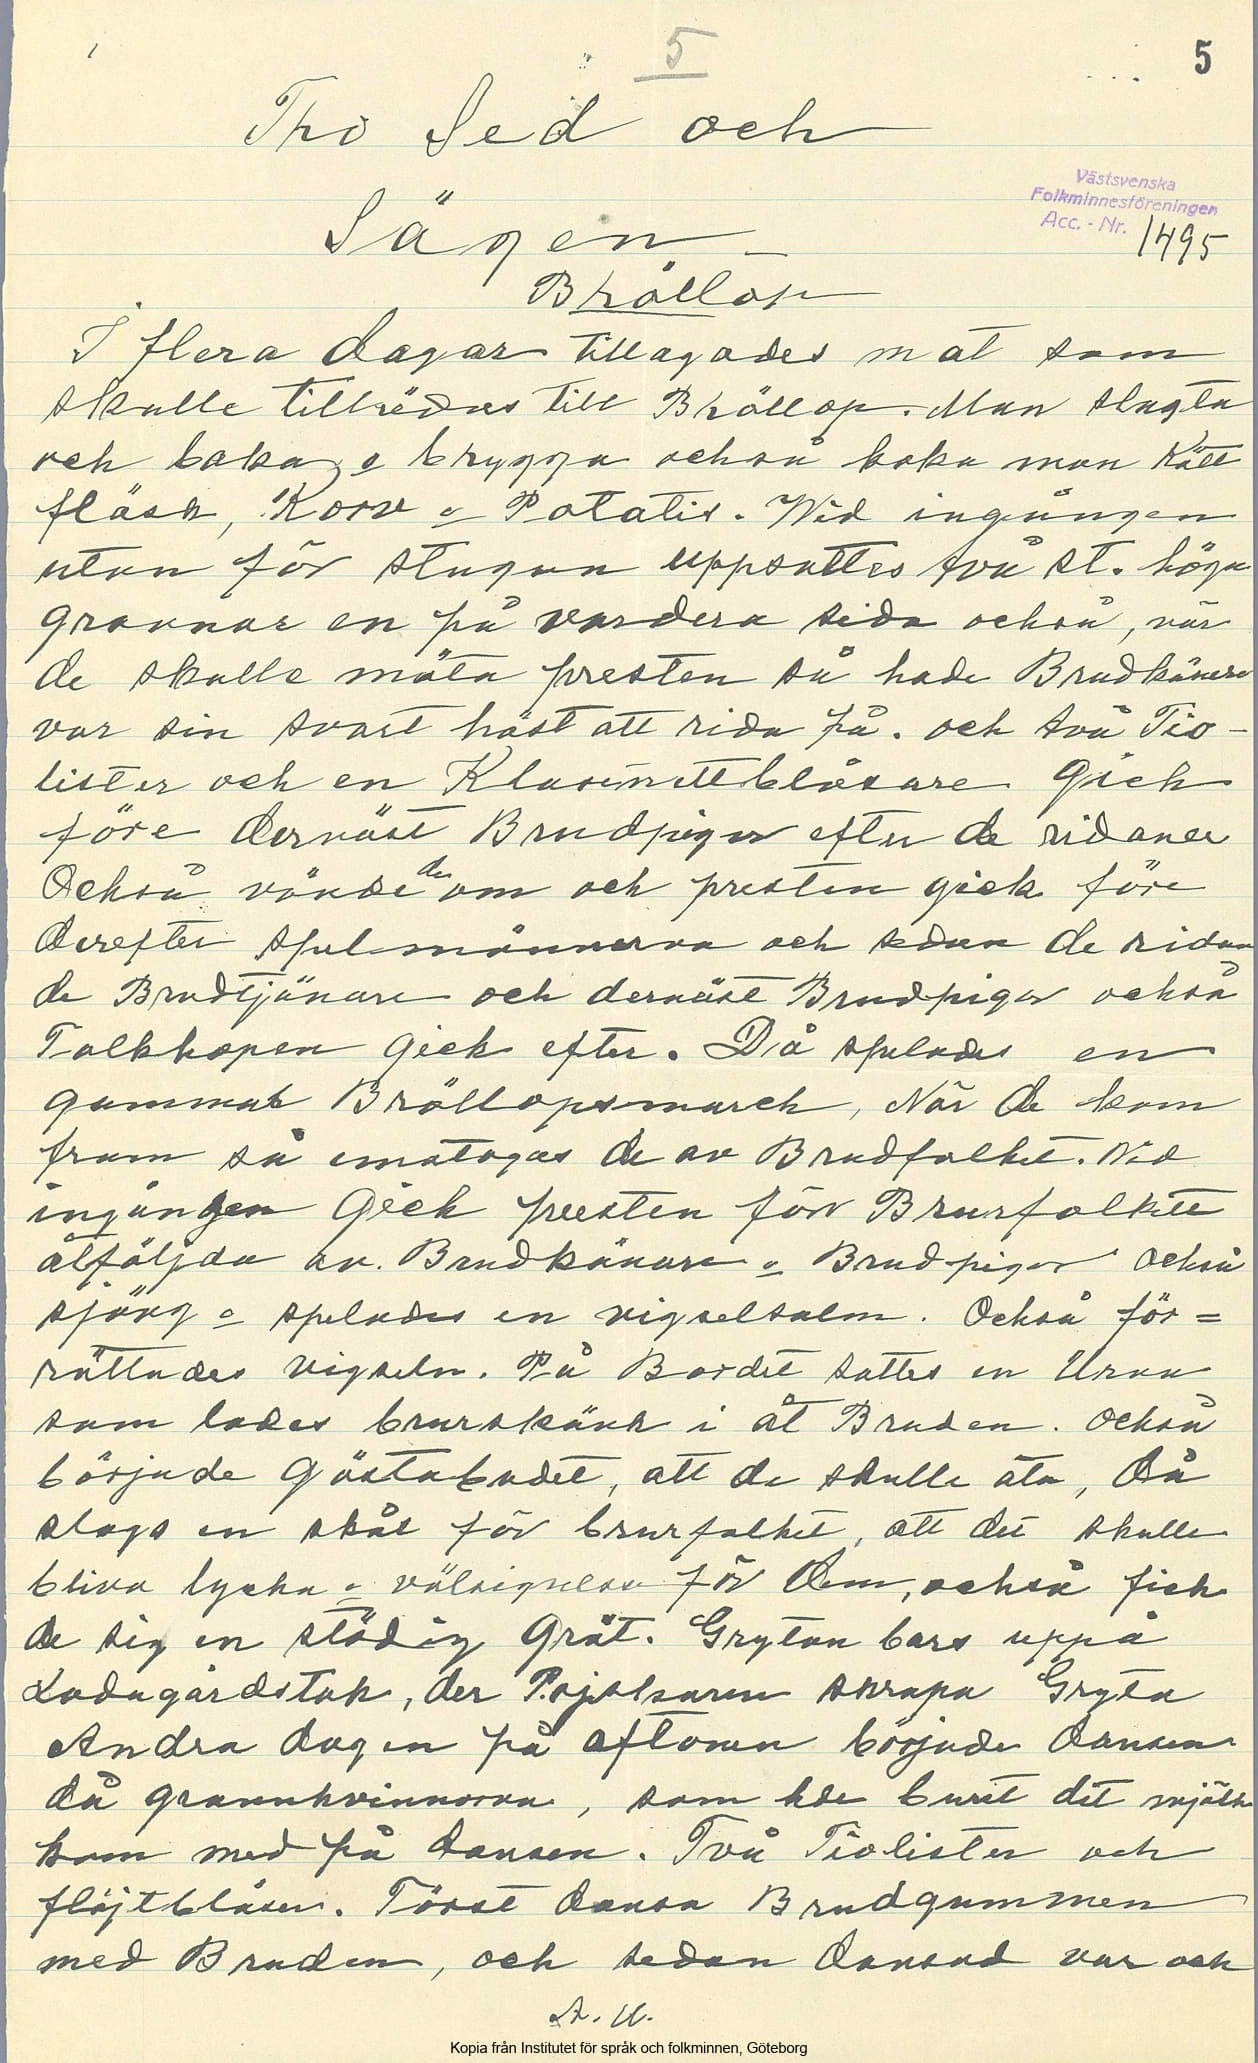 5
5
Tro Sed och
Sägen
Västsvenska
Folkminnesföreningen
Acc. - Nr. 1495
Bröllop
I flera dagar tillagades mat som
skulle tillredas till Bröllop. Man slagta
och baka, o brygga också koka man kött
fläsk, Korv o Potatis. Wid ingången
utan för stugan uppsattes två st. höga
grannar en på vardera sida också, när
de skulle möta presten så hade Brudkänare
var sin svart häst att rida på. och två Fio-
lister och en Klarinettblåsare gick
före dernäst Brudpigor efter de ridanee
Också vände de om och presten gick före
derefter spelmännerna och sedan de ridan
de Brudtjänare och dernäst Brudpigor också
Folkhopen gick efter. Då spelades en
gammal Bröllopsmarch, När de kom
fram så emotogas de av Brudfolket. Vid
ingången Gick presten förr Brurfolkete
åtföljda av. Brudkänare o Brudpigor också
sjöng o spelades en vigselsalm. Också för=
rättades vigseln. På Bordet sattes en Urna
som lades brurskänk i åt Bruden. också
började Gästabudet, att de skulle äta, då
slogs en skål för brurfolket, att det skulle
bliva lycka o välsignelse för dem, också fick
de sig en stödig Gröt. Grytan bars uppå
Ladugårdstak, der Pojskarne skrapa Gryta
Andra dagen på aftonen började dansen
då grannkvinnorna, som hde burit dit mjölk
kom med på dansen. Två Fiolister och
flöjtblåser. Först dansa Brudgummen
med Bruden, och sedan dansad var och
A. U.
Kopia från Institutet för språk och folkminnen, Göteborg